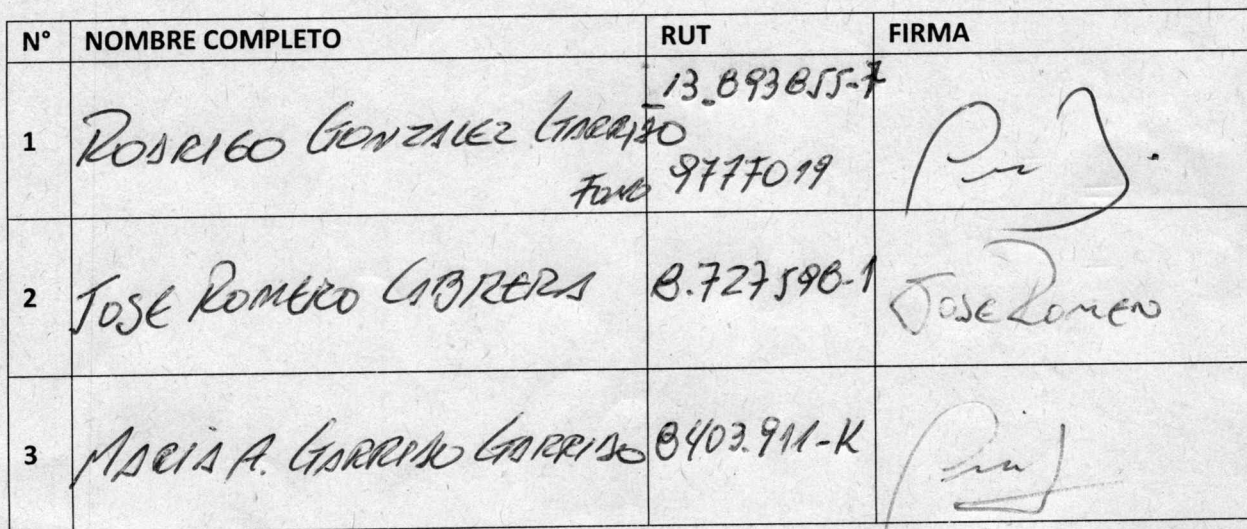 N° NOMBRE COMPLETO RUT FIRMA
13.893855-7
1 RODRIGO GONZALEZ GARRIDO
FONO 9777019
2 JOSE ROMERO CABRERA 8.727598-1 JOSE ROMERO
3 MARIA A. GARRIDO GARRIDO 8403.911-K